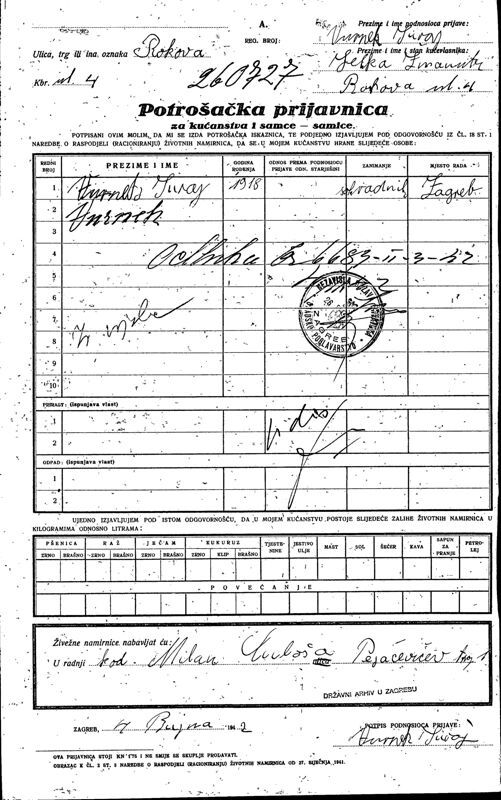 A.
REG. BROJ:
Prezime i ime podnosioca prijave:
Vurnek Juraj
Ulica, trg ili ina. oznaka Rokova
Prezime i ime i stan kućevlasnika:
Kbr. ul. 4
260727
Rokova ul. 4
Potrošačka prijavnica
za kućanstva i samce — samice.
POTPISANI OVIM MOLIM, DA MI SE IZDA POTROŠAČKA ISKAZNICA, TE PODJEDNO IZJAVLJUJEM POD ODGOVORNOŠĆU IZ ČL. 18 ST. 1
NAREDBE O RASPODJELI (RACIONIRANJU) ŽIVOTNIH NAMIRNICA, DA SE U MOJEM KUĆANSTVU HRANE SLIJEDEĆE OSOBE:
REDNI BROJ
PREZIME I IME
GODINA ROĐENJA
ODNOS PREMA PODNOSIOCU PRIJAVE ODN. STARJEŠINI
ZANIMANJE
MJESTO RADA
1 Vurnek Juraj 1918 Zagreb
2 Vurnek
3
4
5
6
7
8
9
10
NEZAVISNA DRŽAVA HRVATSKA
GRADSKO POGLAVARSTVO
ZAGREB
PRIRAST: (ispunjava vlast)
1
2
ODPAD: (ispunjava vlast)
1
2
UJEDNO IZJAVLJUJEM POD ISTOM ODGOVORNOŠĆU, DA U MOJEM KUĆANSTVU POSTOJE SLIJEDEĆE ZALIHE ŽIVOTNIH NAMIRNICA U
KILOGRAMIMA ODNOSNO LITRAMA:
PŠENICA RAŽ JEČAM KUKURUZ TJESTENINE JESTIVO ULJE MAST SOL ŠEĆER KAVA SAPUN ZA PRANJE PETROLEJ
ZRNO BRAŠNO ZRNO BRAŠNO ZRNO BRAŠNO ZRNO KLIP BRAŠNO
POVEĆANJE
Živežne namirnice nabavljat ću:
U radnji kod Milan
DRŽAVNI ARHIV U ZAGREBU
ZAGREB, 4 Rujna 1942
POTPIS PODNOSIOCA PRIJAVE:
Vurnek Juraj
OVA PRIJAVNICA STOJI KN 1'75 I NE SMIJE SE SKUPLJE PRODAVATI.
OBRAZAC K ČL. 2 ST. 2 NAREDBE O RASPODJELI (RACIONIRANJU) ŽIVOTNIH NAMIRNICA OD 27. SIJEČNJA 1941.